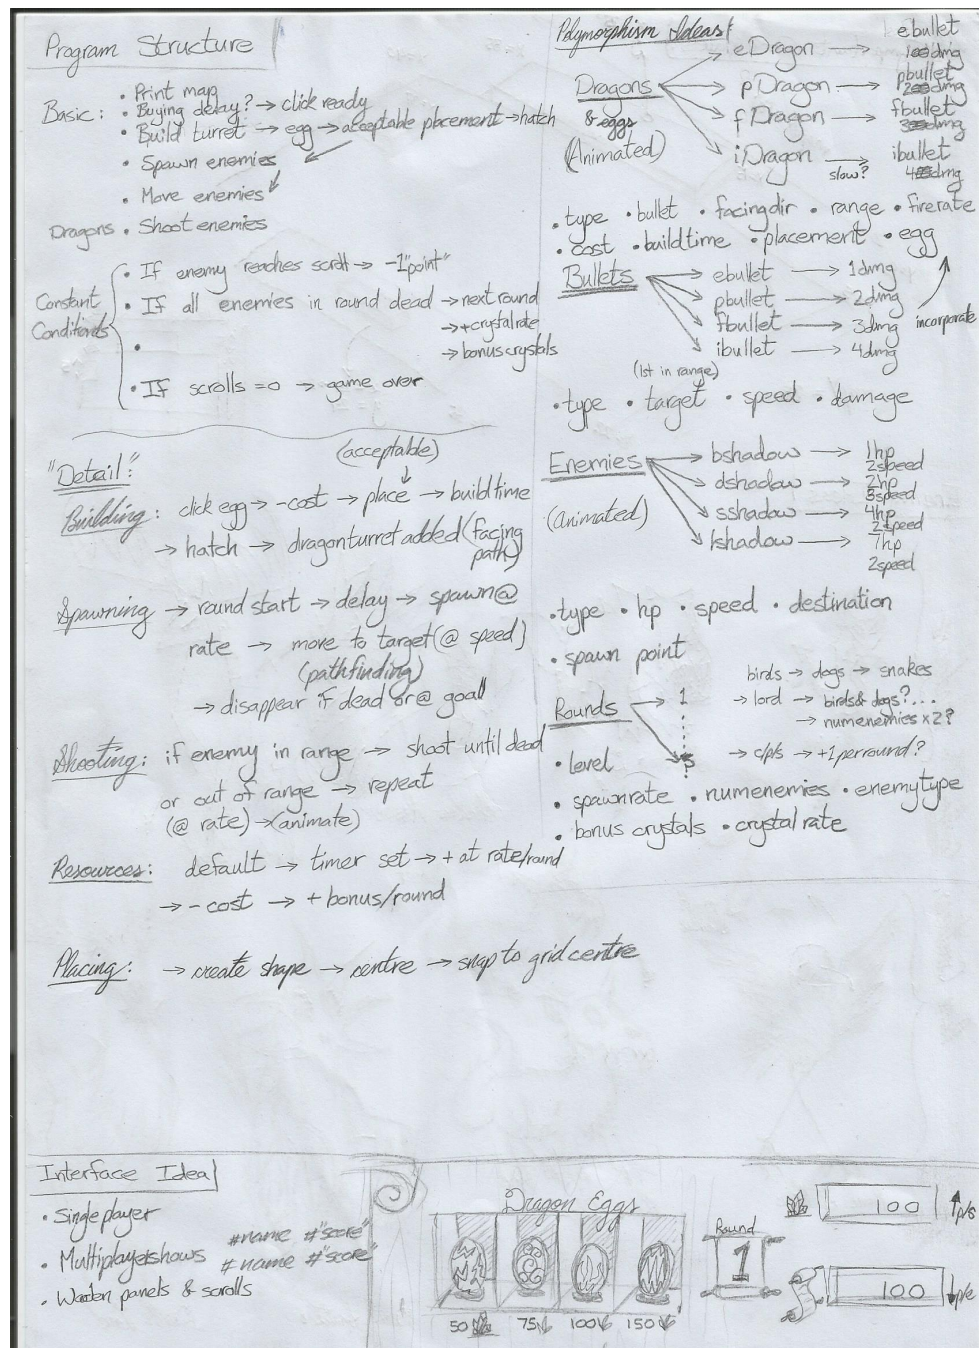 Program Structure
Basic:
• Print map
• Buying delay? → click ready
• Build turret → egg → acceptable placement → hatch
• Spawn enemies
• Move enemies
Dragons • Shoot enemies
Constant Conditions
• If enemy reaches scroll → -1 "point"
• If all enemies in round dead → next round
→ + crystal rate
→ bonus crystals
•
• If scrolls = 0 → game over
"Detail":
(acceptable)
Building: click egg → -cost → place → build time
→ hatch → dragon turret added (facing path)
Spawning → round start → delay → spawn @
rate → move to target (@ speed)
(pathfinding)
→ disappear if dead or @ goal
Shooting: if enemy in range → shoot until dead
or out of range → repeat
(@ rate) → (animate)
Resources: default → timer set → + at rate/round
→ - cost → + bonus/round
Placing: → create shape → centre → snap to grid centre
Polymorphism Ideas!
Dragons & eggs (Animated)
eDragon → ebullet
dmg
pDragon → pbullet
dmg
fDragon → fbullet
dmg
iDragon → ibullet
slow?
dmg
• type • bullet • facingdir • range • firerate
• cost • buildtime • placement • egg
Bullets
ebullet → 1dmg
pbullet → 2dmg
fbullet → 3dmg
ibullet → 4dmg
incorporate
(1st in range)
• type • target • speed • damage
Enemies (Animated)
bshadow → 1hp
2speed
dshadow → 2hp
3speed
sshadow → 4hp
2speed
lshadow → 7hp
2speed
• type • hp • speed • destination
• spawn point
Rounds → 1
birds → dogs → snakes
→ lord → birds & dogs?...
→ numenemies x2?
→ c/p/s → +1 per round?
• level
• spawnrate • numenemies • enemytype
• bonus crystals • crystal rate
Interface Idea
• Single player
• Multiplayer shows #name #"score"
#name #"score"
• Wooden panels & scrolls
Dragon Eggs
50 75 100 150
Round
1
100 p/s
100 p/e